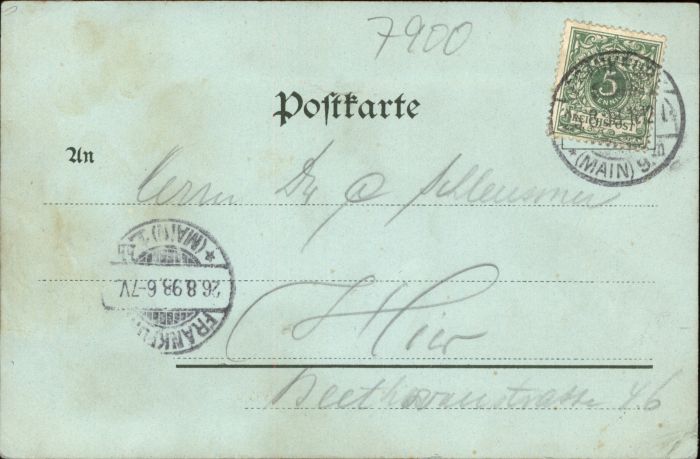 7900
5
REICHSPOST
(MAIN) 9
Postkarte
An
Herrn Dr C Schleussner
FRANKFURT
26.8.98.6-7V.
* (MAIN) 1
Hier
Beethovenstrasse 46